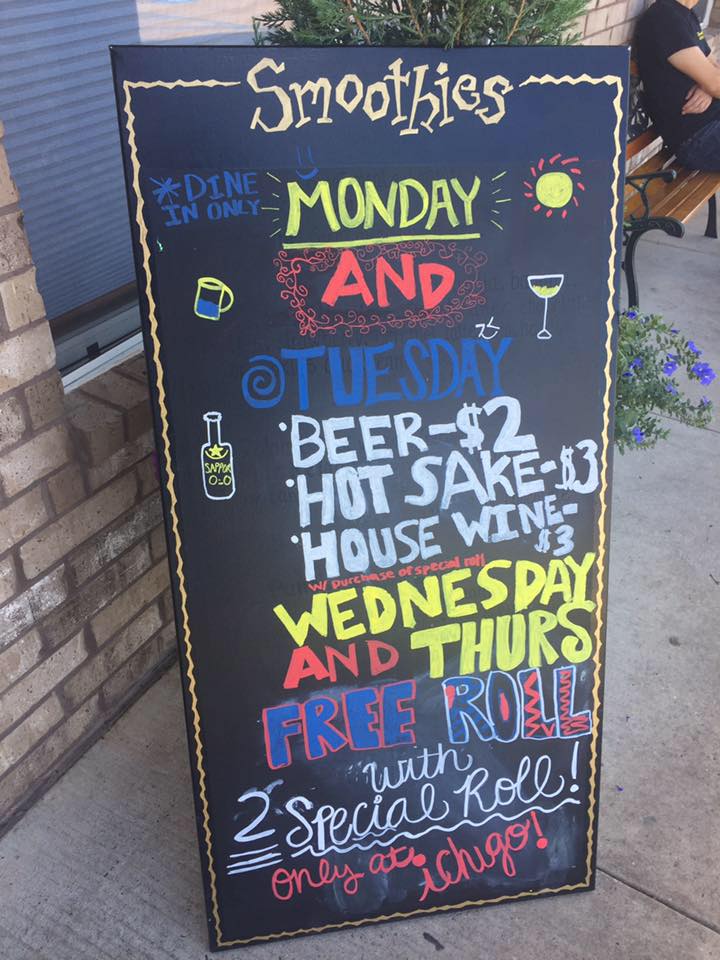 Smoothies
*DINE
IN ONLY
MONDAY
AND
TUESDAY
·BEER-$2
·HOT SAKE-$3
·HOUSE WINE-
$3
SAPPOR
O-O
W/ purchase of special roll
WEDNESDAY
AND THURS
FREE ROLL
with
2 Special Roll!
only at ichigo!